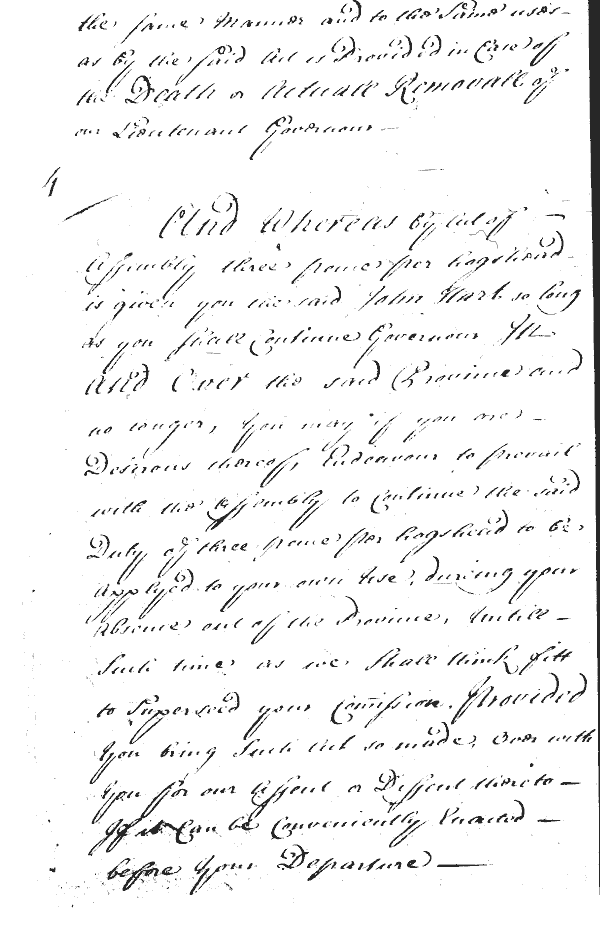 the same Manner and to the Same uses
as by the said Act is Provided in Case off
the Death or Actuall Removall off
our Lieutenant Governour —
4
And Whereas by Act off —
Assembly three pence per hogshead
is given you the said John Hart so long
as you shall Continue Governour In
and Over the said Province and
no longer, You may if you are —
Desirous thereoff, Endeavour to prevail
with the Assembly to Continue the said
Duty off three pence per hogshead to be
applyed to your own Use, during your
Absence out off the Province, Untill —
Such time as we Shall think fitt
to Superseed your Comission. Provided
You bring Such Act so made, Over with
You for our Assent or Dissent thereto —
If it Can be Conveniently Enacted —
before Your Departure —